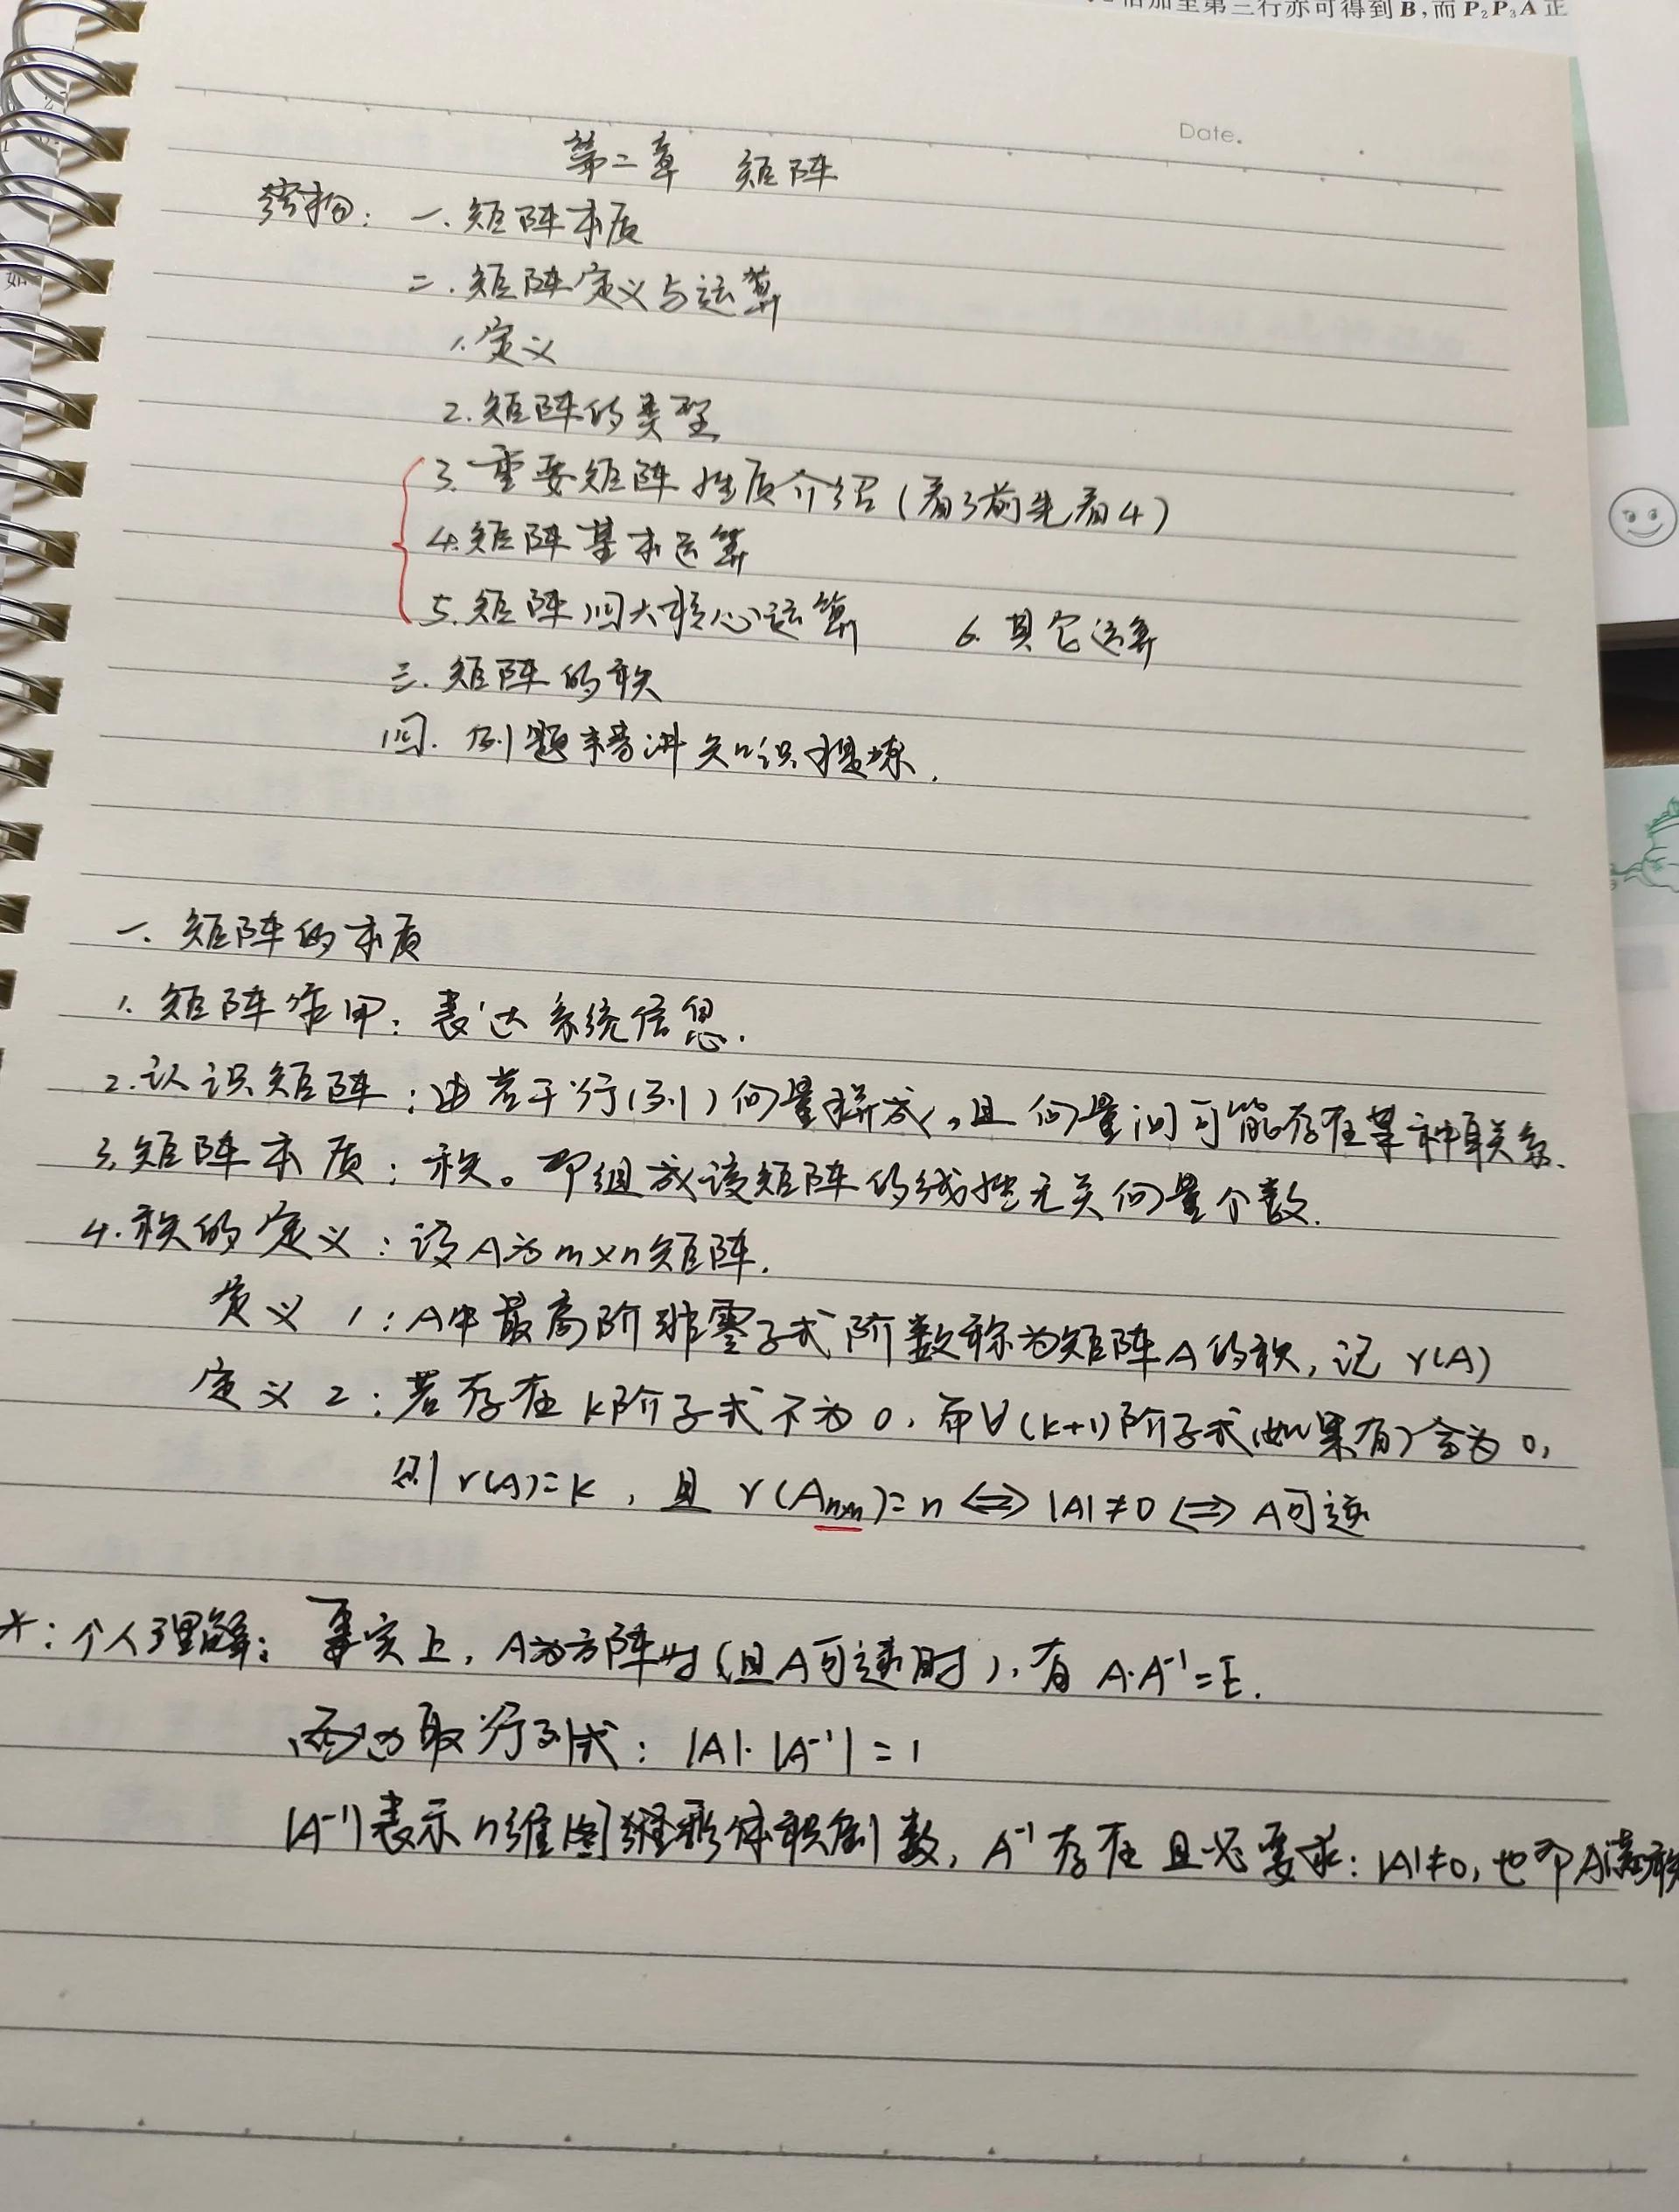 倍加至第三行亦可得到B,而P₂P₃A正
Date.
第二章 矩阵
结构：一. 矩阵本质
二. 矩阵定义与运算
1. 定义
2. 矩阵的类型
3. 重要矩阵性质介绍（看3前先看4）
4. 矩阵基本运算
5. 矩阵四大核心运算 6. 其它运算
三. 矩阵的秩
四. 例题精讲知识提炼.
一. 矩阵的本质
1. 矩阵作用：表达系统信息.
2. 认识矩阵：由若干行(列)向量拼成,且向量间可能存在某种联系.
3. 矩阵本质：秩。即组成该矩阵的线性无关向量个数.
4. 秩的定义：设A为m×n矩阵.
定义1：A中最高阶非零子式阶数称为矩阵A的秩, 记 r(A)
定义2：若存在k阶子式不为0, 而∀(k+1)阶子式(如果有)全为0,
则 r(A)=k , 且 r(Aₙₓₙ)=n ⇔ |A|≠0 ⇔ A可逆
*：个人理解：事实上, A为方阵时(且A可逆时), 有 A·A⁻¹=E.
两边取行列式：|A|·|A⁻¹|=1
|A⁻¹|表示n维图形体积倒数, A⁻¹存在且必要求：|A|≠0, 也即A满秩